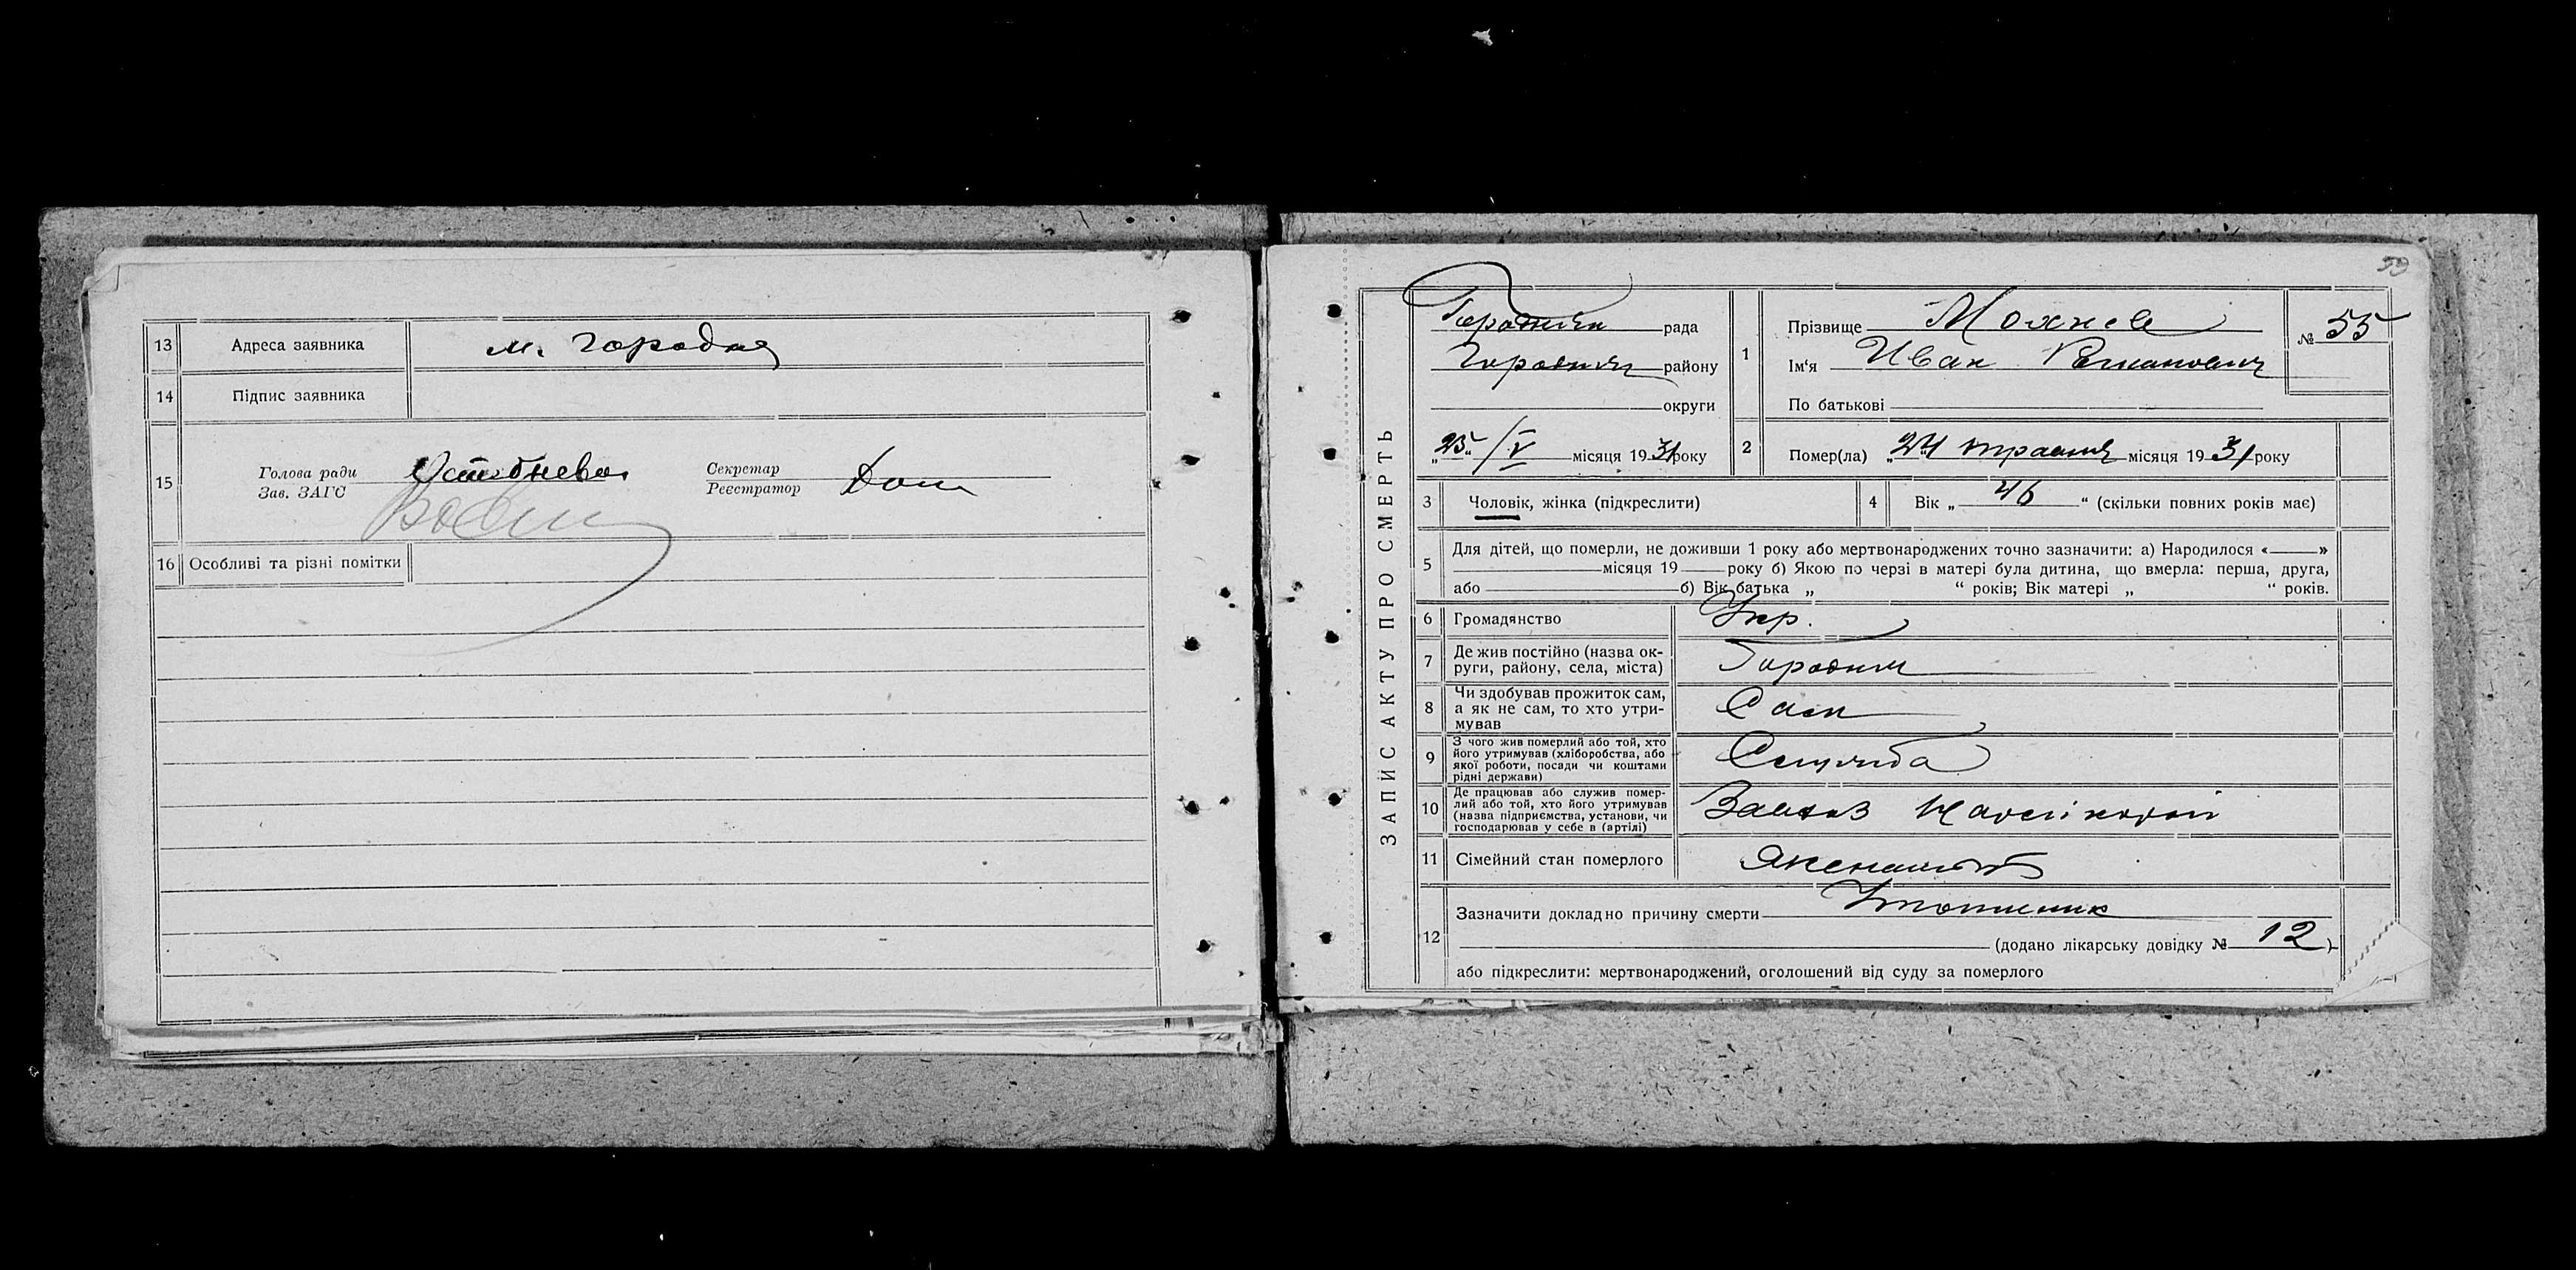 13 Адреса заявника м. Городня
14 Підпис заявника
15 Голова ради Секретар
Зав. ЗАГС Реєстратор
16 Особливі та різні помітки
59
ЗАПИС АКТУ ПРО СМЕРТЬ
рада
району
округи
„25“/V місяця 1931 року
№ 55
1 Прізвище
Ім'я Иван
По батькові
2 Помер(ла) „24 травня місяця 1931 року
3 Чоловік, жінка (підкреслити)
4 Вік „ 46 “ (скільки повних років має)
5 Для дітей, що померли, не доживши 1 року або мертвонароджених точно зазначити: а) Народилося « »
місяця 19 року б) Якою по черзі в матері була дитина, що вмерла: перша, друга,
або б) Вік батька „ “ років; Вік матері „ “ років.
6 Громадянство Укр.
7 Де жив постійно (назва ок-
руги, району, села, міста)
8 Чи здобував прожиток сам,
а як не сам, то хто утри-
мував
Сам
9 З чого жив померлий або той, хто
його утримував (хліборобства, або
якої роботи, посади чи коштами
рідні держави)
Служба
10 Де працював або служив помер-
лий або той, хто його утримував
(назва підприємства, установи, чи
господарював у себе в (артілі)
11 Сімейний стан померлого
12 Зазначити докладно причину смерти
(додано лікарську довідку № 12)
або підкреслити: мертвонароджений, оголошений від суду за померлого